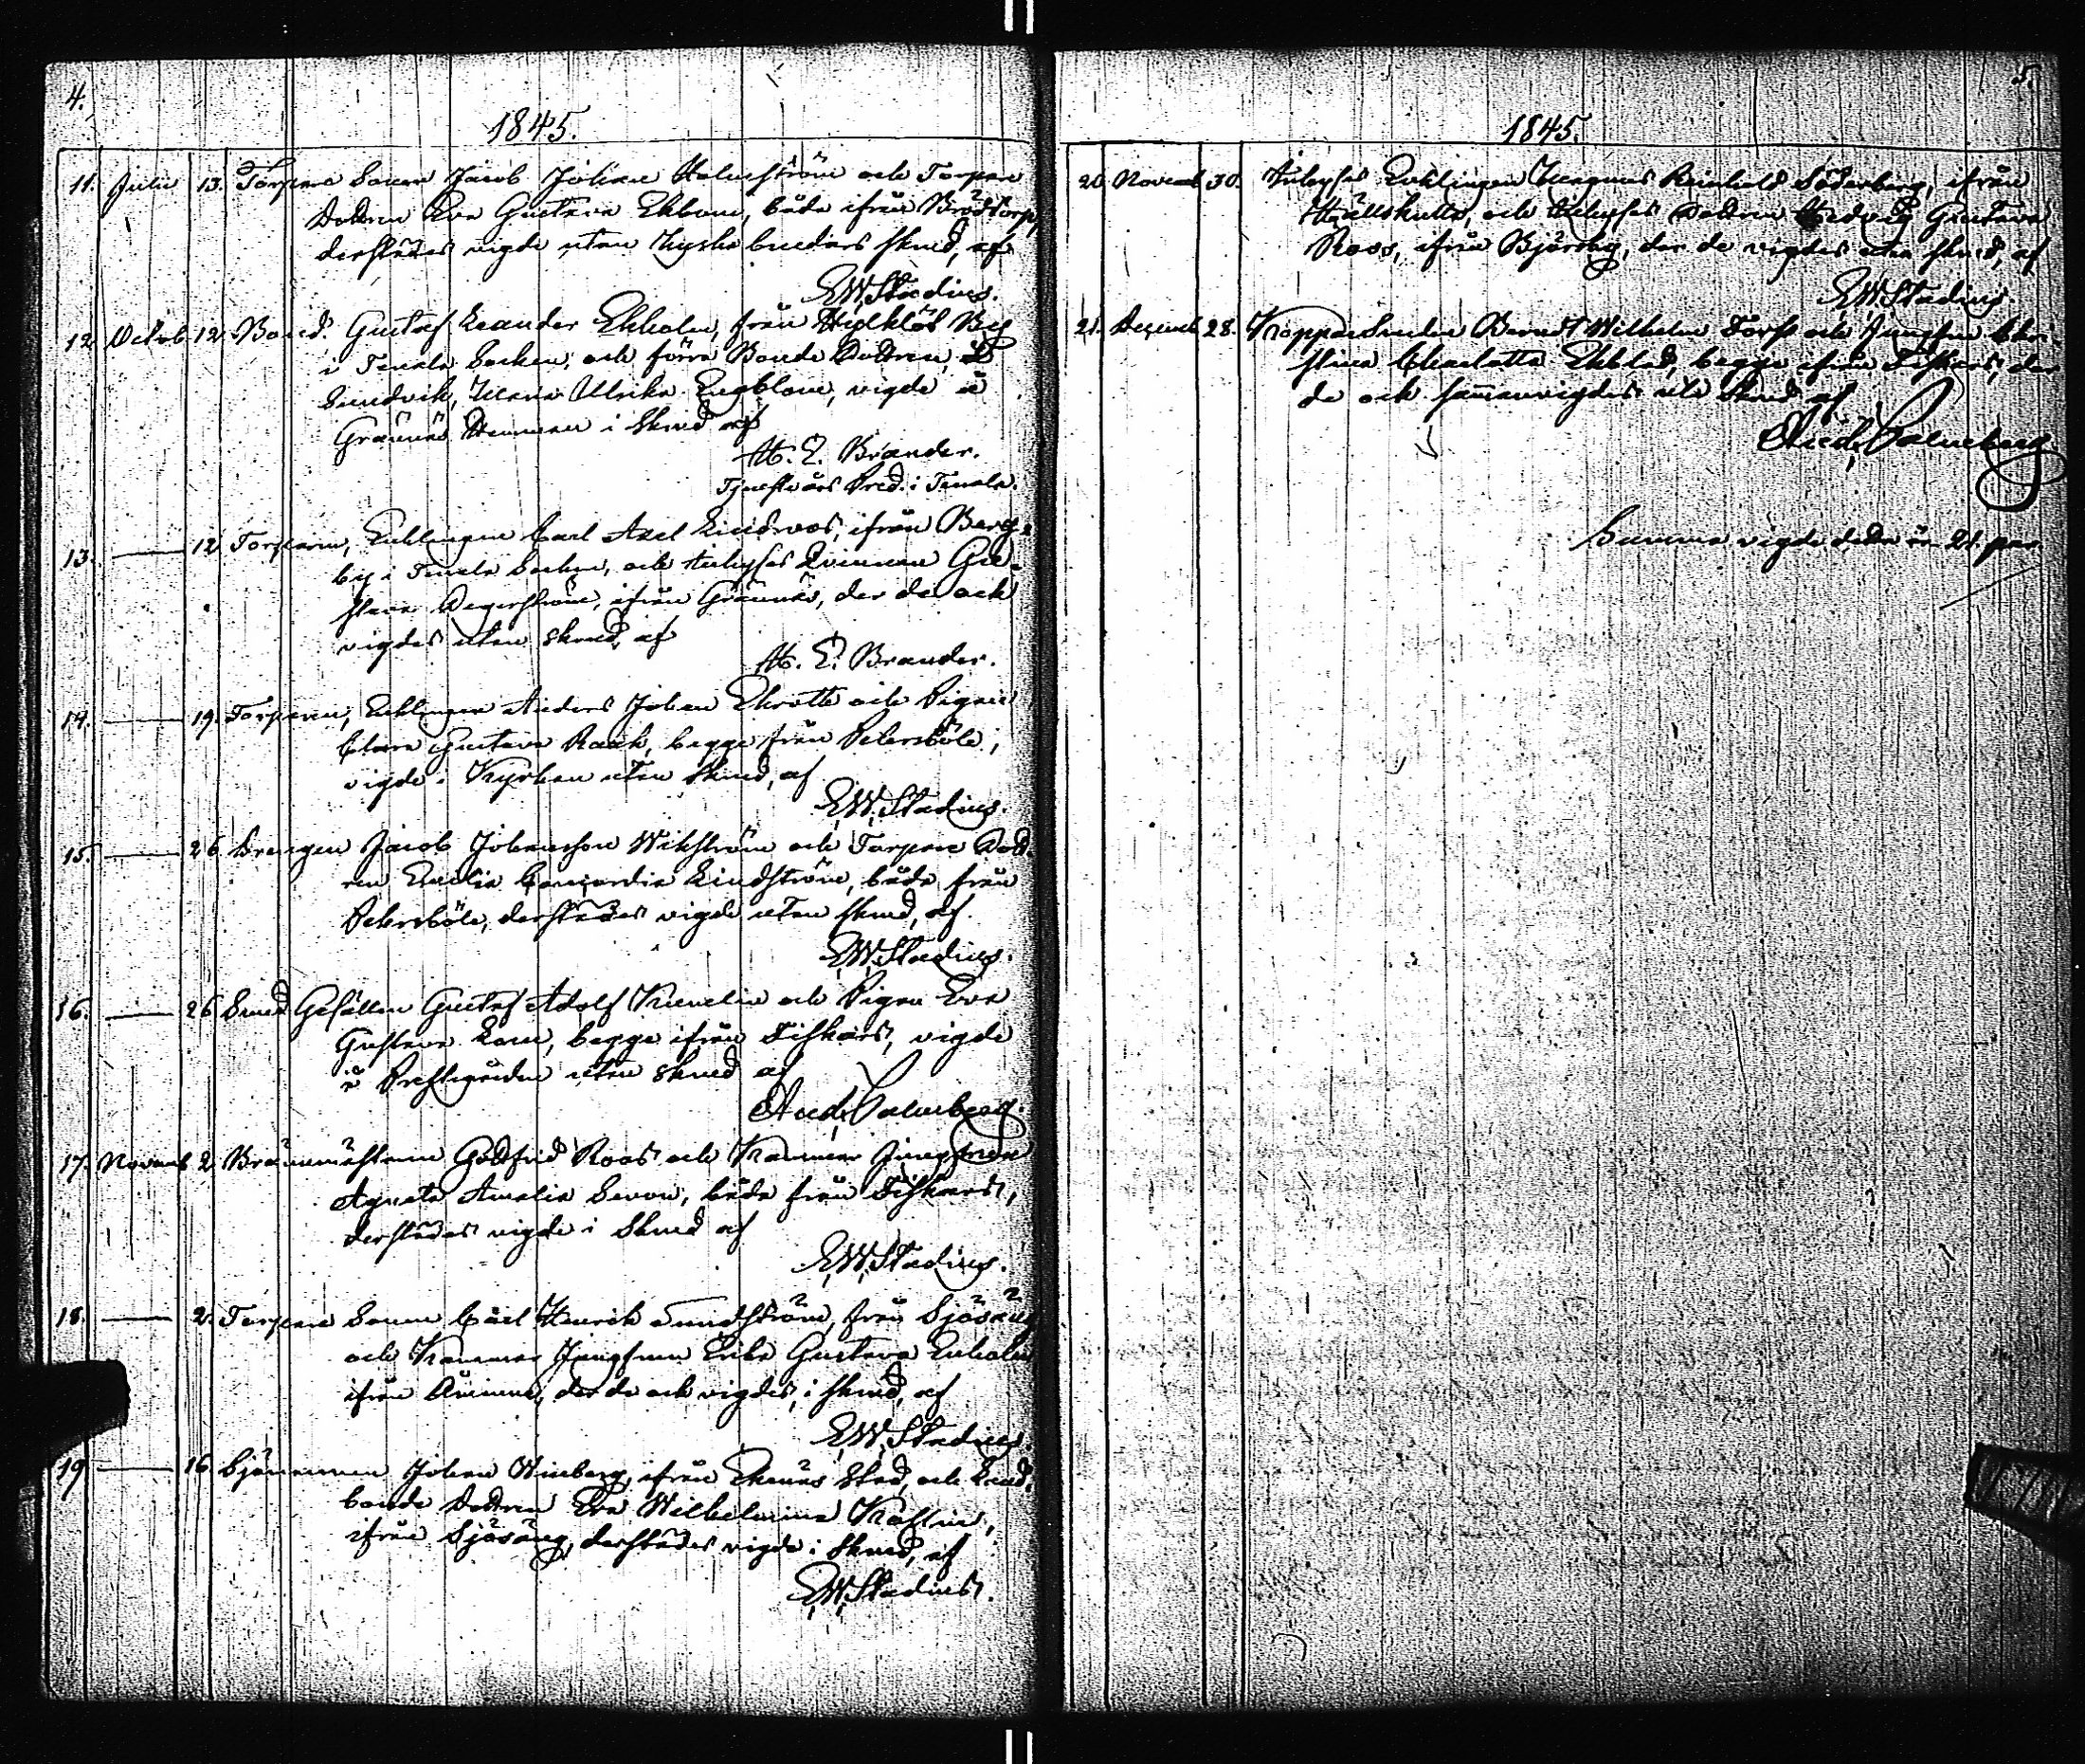 4.
1845.
11. Julii 13. Torpare Sonen Jacob Johan Holmström och Torpare
Dottren Eva Gustava Ekbom, båda ifrån Brödtorp,
derstädes vigde utan skrud, af
EW. Stadius.
12. Octob. 12. Bond. Gustaf Leander Ekholm, från By
i Tenala Socken, och förra Bonde Dottren, å
Sundvik, Maria Ulrika Engblom, vigde å
Grännäs Hemman i Skrud af
H. E. Brander.
Tjenstvårs Pred. i Tenala.
13. — 12 Torparen, Enklingen Carl Axel Lindroos, ifrån Berg-
by i Tenala Socken, och Inhyses Qvinnan Gu-
stava Degerström, ifrån Grännäs, der de ock
vigdes utan skrud, af
H. E. Brander.
14. — 19. Torparen, Enklingen Anders Johan och Pigan
Clara Gustava Raak, begge från Petersböle,
vigde i Kyrkan utan Skrud, af
EW. Stadius.
15. — 26 Drengen Jacob Johansson Wikström och Torpare Dott-
ren Emelie Concordia Lindström, båda från
Petersböle, derstädes vigde utan skrud, af.
EW. Stadius.
16. — 26 Smed Gesällen Gustaf Adolf och Pigan Eva
Gustava begge ifrån Fiskars, vigde
i Prestgården utan skrud af
And. Palmberg.
17. Novemb 2 Brännmästaren Godfrid Roos och Kammar Jungfrun
Agneta Amalia båda från Fiskars,
derstädes vigde i Skrud af
EW. Stadius.
18. — 2. Torpare Sonen Carl Henrik Sundström, från Sjösäng
och Kammar Jungfrun Erika Gustava
ifrån Åminne, der de ock vigdes, i skrud, af
EW. Stadius.
19 — 16 Sjömannen Johan ifrån Ekenäs Stad, och Land-
bonde Dottren Eva Wilhelmina
ifrån Sjösäng, derstädes vigde i Skrud, af
EW. Stadius.
5.
1845.
20. Novemb 30. Inhyses Enklingen Magnus Reinhold Söderberg, ifrån
och Inhyses Dottren Hedvig Gustava
Roos, ifrån Björsby, der de vigdes utan skrud, af
EW. Stadius.
21. Decemb 28. Kopparsmeden Berndt Wilhelm Forss och Jungfrun Chri-
stina Charlotta Ekblad, begge ifrån Fiskars, der
de ock sammanvigdes utan Skrud af
And. Palmberg
Summa vigde detta år 21. par.